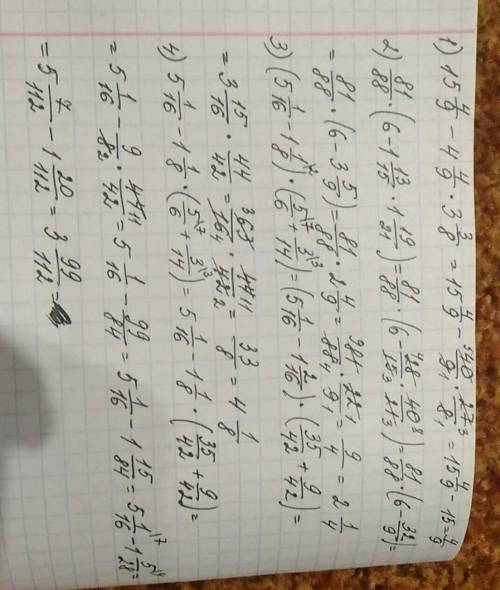 1) 15 4/9 - 4 4/9 · 3 3/8 = 15 4/9 - 40/9 · 27/8 = 15 4/9 - 15 = 4/9
2) 81/88 · (6 - 1 13/15 · 1 19/21) = 81/88 · (6 - 28/15 · 40/21) = 81/88 · (6 - 32/9) =
= 81/88 · (6 - 3 5/9) = 81/88 · 2 4/9 = 81/88 · 22/9 = 9/4 = 2 1/4
3) (5 1/16 - 1 1/8) · (5/6 + 3/14) = (5 1/16 - 1 2/16) · (35/42 + 9/42) =
= 3 15/16 · 44/42 = 63/16 · 44/42 = 33/8 = 4 1/8
4) 5 1/16 - 1 1/8 · (5/6 + 3/14) = 5 1/16 - 1 1/8 · (35/42 + 9/42) =
= 5 1/16 - 9/8 · 44/42 = 5 1/16 - 99/84 = 5 1/16 - 1 15/84 = 5 1/16 - 1 5/28 =
= 5 7/112 - 1 20/112 = 3 99/112